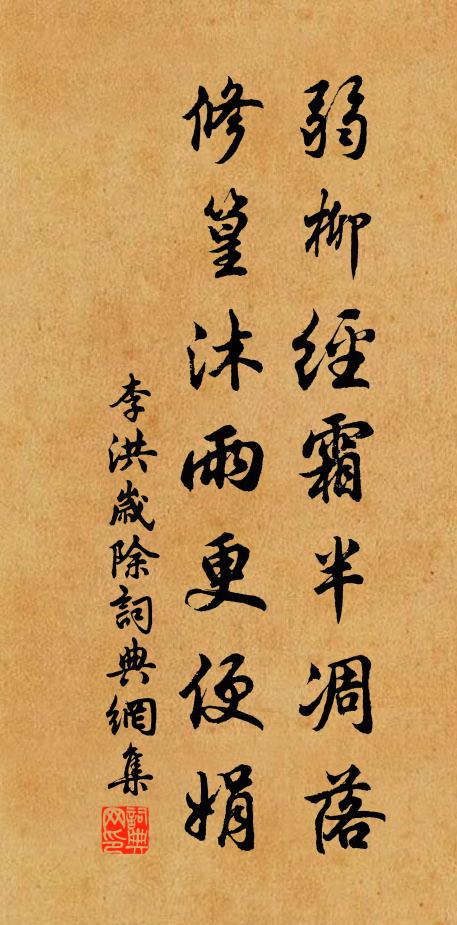 弱柳經霜半凋落
修篁沐雨更便娟
李洪歲除詞典網集
詞典网印